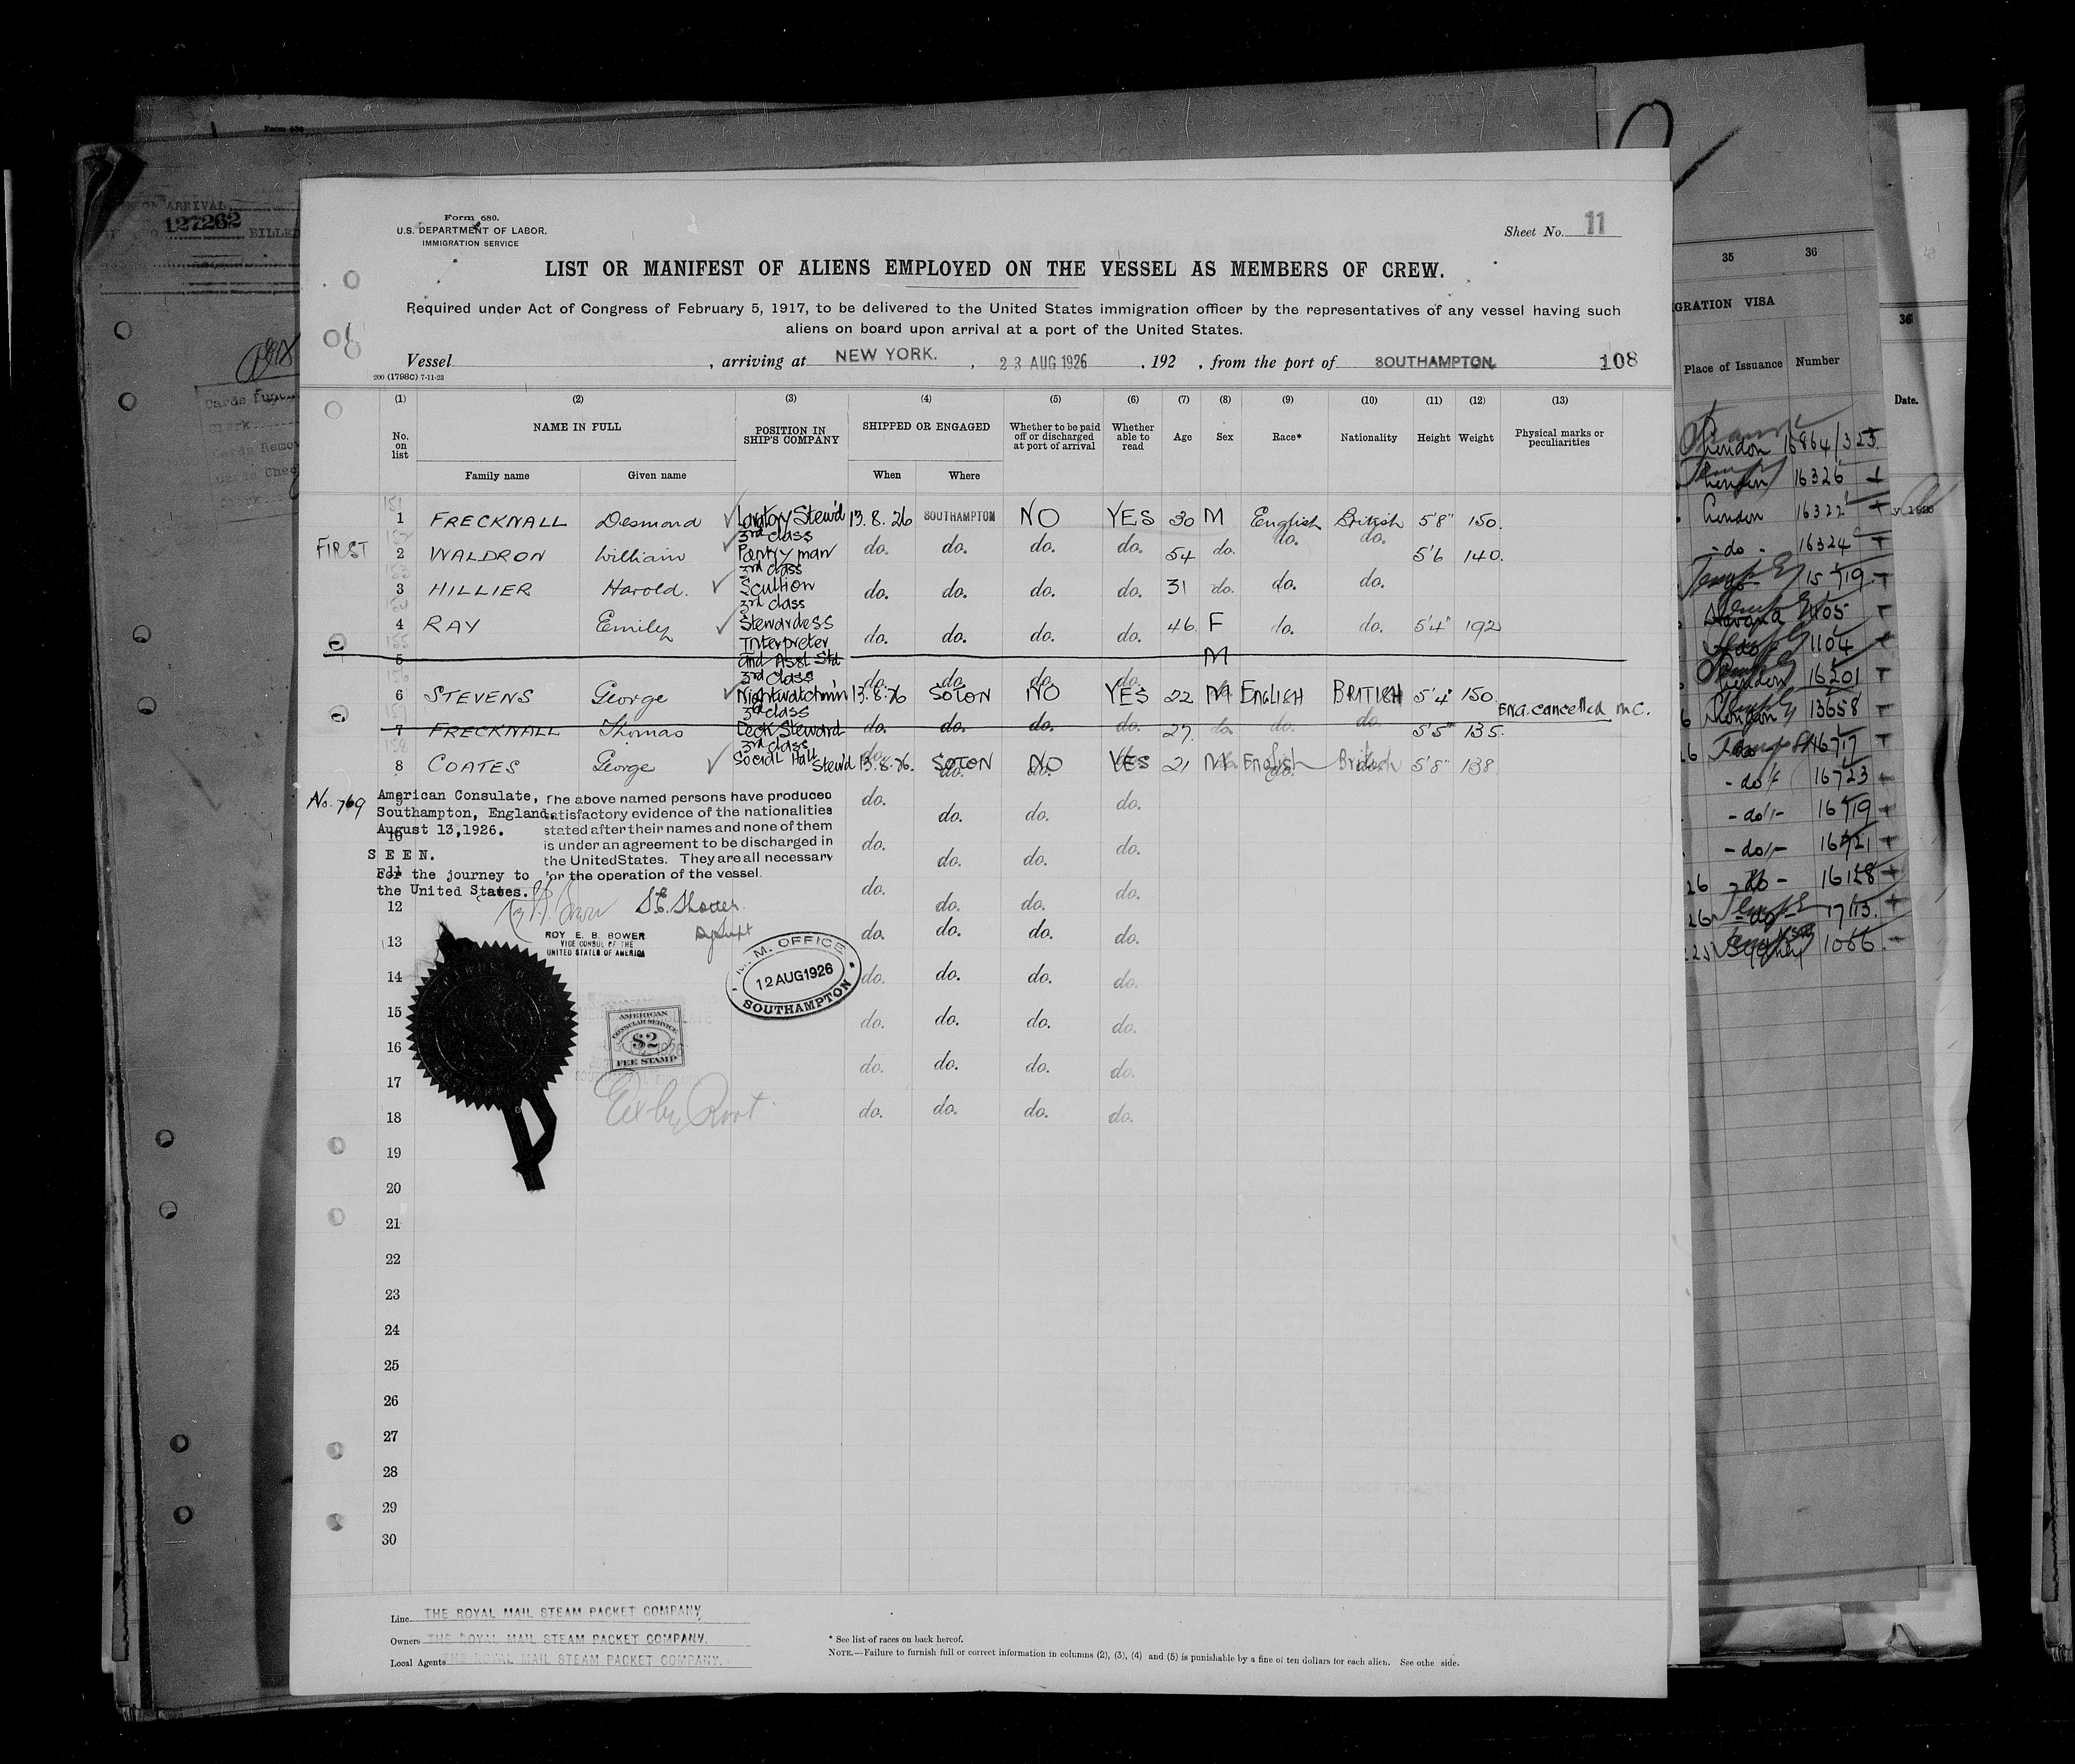 Form 680.
U.S. DEPARTMENT OF LABOR.
IMMIGRATION SERVICE
Sheet No. 11
LIST OR MANIFEST OF ALIENS EMPLOYED ON THE VESSEL AS MEMBERS OF CREW.
Required under Act of Congress of February 5, 1917, to be delivered to the United States immigration officer by the representatives of any vessel having such
aliens on board upon arrival at a port of the United States.
Vessel , arriving at NEW YORK. , 23 AUG 1926 , 192 , from the port of SOUTHAMPTON. 108
200 (1796C) 7-11-23
(1) (2) (3) (4) (5) (6) (7) (8) (9) (10) (11) (12) (13)
No. on list NAME IN FULL POSITION IN SHIP'S COMPANY SHIPPED OR ENGAGED Whether to be paid off or discharged at port of arrival Whether able to read Age Sex Race* Nationality Height Weight Physical marks or peculiarities
Family name Given name When Where
1 FRECKNALL Desmond Lavatory Stew'd 13.8.26 SOUTHAMPTON NO YES 30 M English British 5'8" 150.
3rd class
FIRST 2 WALDRON William Pantry man do. do. do. do. 54 do. do. do. 5'6 140.
3rd class
3 HILLIER Harold. Scullion do. do. do. do. 31 do. do. do.
3rd class
4 RAY Emily Stewardess do. do. do. do. 46. F do. do. 5'4" 192
Interpreter
5 and Asst Std M
3rd Class do. do. do. do.
6 STEVENS George Nightwatchm'n 13.8.26 SOTON NO YES 22 M ENGLISH BRITISH 5'4" 150
3rd class ENG. cancelled M.C.
7 FRECKNALL Thomas Deck Steward do. do. do. do. 27. do. do. do. 5'5" 135.
3rd class
8 COATES George Social Hall Stew'd 13.8.26. SOTON NO YES 21 M English British 5'8" 138
No. 769
American Consulate,
Southampton, England.
August 13,1926.
SEEN.
For the journey to
the United States.
The above named persons have produced
satisfactory evidence of the nationalities
stated after their names and none of them
is under an agreement to be discharged in
the United States. They are all necessary
for the operation of the vessel.
ROY E. B. BOWER
VICE CONSUL OF THE
UNITED STATES OF AMERICA
M. M. OFFICE
12 AUG 1926
SOUTHAMPTON
AMERICAN
CONSULAR SERVICE
$2
FEE STAMP
do. do. do. do.
10 do. do. do. do.
11 do. do. do. do.
12
13 do. do. do. do.
14 do. do. do. do.
15 do. do. do. do.
16 do. do. do. do.
17
18 do. do. do. do.
19
20
21
22
23
24
25
26
27
28
29
30
Line THE ROYAL MAIL STEAM PACKET COMPANY
Owners THE ROYAL MAIL STEAM PACKET COMPANY.
Local Agents THE ROYAL MAIL STEAM PACKET COMPANY.
* See list of races on back hereof.
NOTE.—Failure to furnish full or correct information in columns (2), (3), (4) and (5) is punishable by a fine of ten dollars for each alien. See othe side.
ARRIVAL
127262 BILLED
35 36
GRATION VISA
Place of Issuance Number
36
Date.
London 16864/323
London 16326
London 16322
-do- 16324
15719
1105
do 1104
London 16201
London 13658
16717
-do- 16723
-do- 16719
-do- 16721
-do- 16128
-do- 17113.
Sydney 1066